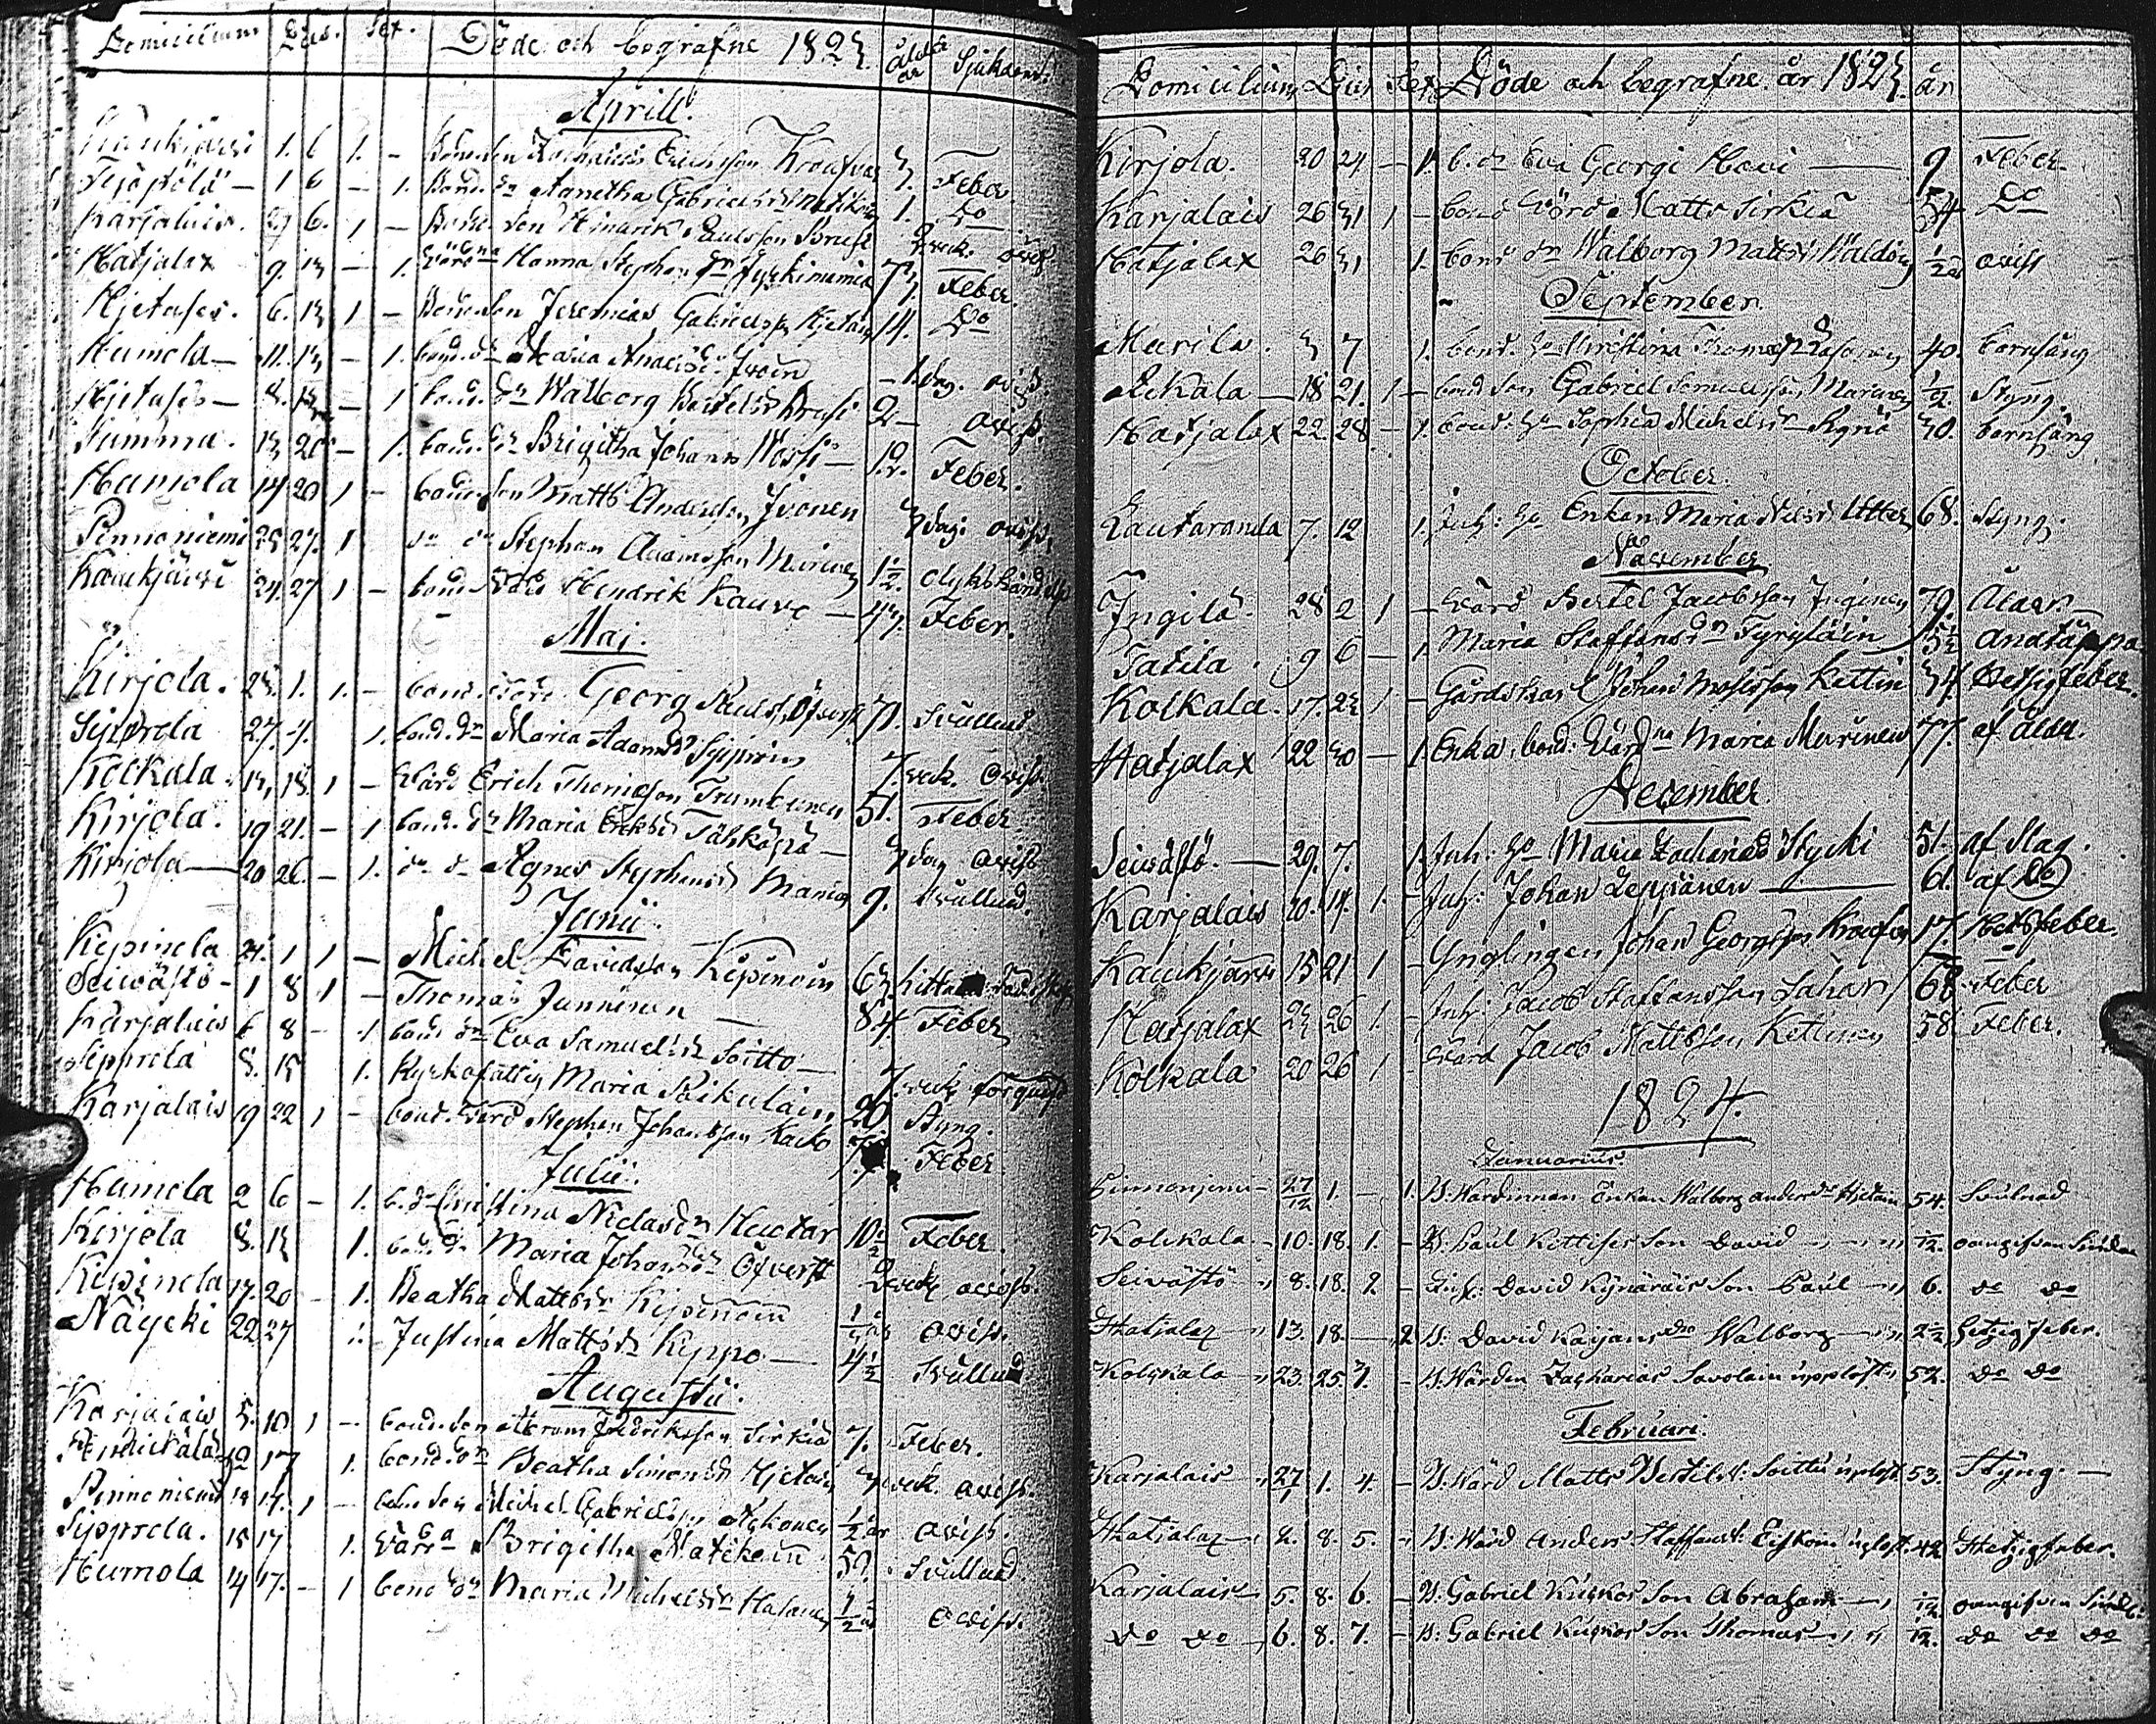 Domicilium Dies. Sex. Döde och begrafne 1823. ålder år Sjukdom.
Aprill.
Kaukjärvi 1. 6 1. - Bonde Son Zacharias Erichsson 3. Feber.
1 6 - 1. Bond. dr Agnetha Gabrielsdr 1. Do
Karjalais. 3 6. 1 - Bonde Son Hinrik Paulsson veck. oviss
Hatjalax 9. 13 - 1. Värdna Hanna Stephansdr 73 Feber.
Hjetases. 6. 13 1 - Bonde Son Jeremias Gabrielsson Hjetain 14. Do
Humola - 11. 13 - 1. bond. dr Maria Andersdr Ivoin - 1 dag. oviss.
Hjetases - 8. 13 - 1 bond. dr Walborg Bertelsdr 2 - oviss.
Summa. 13 20 - 1. bond. dr Brigitha Johansdr 12. Feber.
Humola 17 20 1 - bonde Son Matts Andersson Ivonen 3 dag. oviss.
Pinnoniemi 25 27. 1 do do Stephan Adamsson Murinen 1 1/2. olykshändelse
Kaukjärvi 24. 27 1 - bond. Värd Hendrik Kauve - 43. Feber.
Maj.
Kirjola. 28. 1. 1. - bond. Värd Georg 71. Svullnad
Sipprola 27. 4. 1. bond. dr Maria Adamsdr Sipproin 7 veck. Oviss.
Kolkala. 13, 18. 1 - Värd Erich Thomasson 51. Feber
Kirjola. 19 21. - 1 bond. dr Maria Eriksdr Tähkäpä - 3 dag oviss
Kirjola - 20 26. - 1. do do Agnes Stephansdr 9. Svullnad.
Junii.
Kipinola 24. 1 1 - Michel Davidsson Kipinoin 63.
Seivästö - 1 8 1 - Thomas Junninen - 84. Feber
Karjalais 6 8 - 1 bond dr Eva Samuelsdr Soitto -
Sipprola 8. 15 1. Kyrkofattig Maria 7 veck
Karjalais 19 22 1 - bond. Värd Stephan Johansson 20 Styng.
Feber.
Julii.
Humola 2 6 - 1. b. dr Christina Niclasdr Huotar 10 1/2 Feber.
Kirjola 8. 13 1. bond. dr Maria Johansdr Öfverst 2 veck oviss.
Kipinola 17. 20 - 1. Beatha Mattsdr Kipinoin 1/2 år oviss.
Näycki 22 27 1. Justina Mattsdr Kippo - 4 1/2 Svullnad.
Augusti.
Karjalais 5. 10 1 - bonde Son Abram Fredriksson Sirkiä 7. Feber.
12 17 1. bond dr Beatha Simonsdr Hjetain 3 veck. oviss.
Pinnoniemi 14 17. 1 - bonde Son Michel Gabrielsson Nykonen 1/2 år oviss.
Sipprola. 15 17 1. Värdna Brigitha 50. Svullnad.
Humola 14 17. - 1 bond dr Maria Michelsdr 1/2 år oviss.
Domicilium Dies Sex Döde och begrafne år 1823. år
Kirjola. 20 24 - 1. b. dr Eva Georgi Hovi - 9 Feber
Karjalais 26 31 1 - bond Värd Matts Sirkiä 54 Do
Hatjalax 26 31 1. bond dr Walborg Mattsdr 1/2 år oviss
September.
Murila. 3 7 1. bond. Ho Christina Thomasdr 40. barnsäng
Akkala - 18 21. 1 - bond Son Gabriel Samuelsson Murinen 1/2 Styng.
Hatjalax 22. 28 - 1. bond. Ho Sophia Michelsdr 30. barnsäng
October.
Lautaranda 7. 12 1. Inh: Ho Enkan Maria Nilsdr Utter 68. Styng.
November
Ingilä. 28 2 1 - Värd Bertel Jacobsson Inginen 79. Ålder -
Tatila. 9 6 - 1. Maria Staffansdr 5 1/2
Kolkala. 17. 23 1 - Gårdskarl Johan Mosisson Kettin 34 Hetsigfeber.
Hatjalax 22 30 - 1 Enka, bond: Värdna Maria Murinen 77. af ålder.
December
Seivästö. - 29. 7. 1. Inh: Ho Maria Zachariasdr Hycki 51. af Slag.
Karjalais 10. 14. 1. - Inh: Johan Leppänen - 61. af Do
Kaukjärvi 15 21 1 - Ynglingen Johan Georgsson 17. Hetsfeber.
Hatjalax 23 26 1. - Inh: Jacob Staffansson 68 Feber
Kolkala 20 26 1 - Värd Jacob Mattsson Kettinen 58. Feber.
1824.
Januarius.
Pinnonjemi - 27/12 1. - 1. B. Wärdinnan Enkan Walborg Andersdr Hjetain 54. Svulnad
Kolkala - 10. 18. 1. - B. Paul Kettises Son David - 1/12. oangifven Siukd.
Seivästö - 8. 18. 2. - Inh: David Kynäräis Son Paul - 6. do do
Hatjalax - 13. 18. - 2 B: David Kaijans dr Walborg - 2 1/2 hetzigfeber.
Kolckala - 23. 25. 3. - B. Wärden Zacharias Savolain 52. do do
Februari.
Karjalais - 27/1 1. 4. - B. Wärd Matts Bertelss: Soittu 53. Styng. -
Hatjalax - 2. 8. 5. - B: Wärd Anders Staffanss: 42 Hetzigfeber.
Karjalais - 5. 8. 6. - B: Gabriel Kuckos Son Abraham - 1/12. oangifven Siukd:
do do - 6. 8. 7. - B: Gabriel Kuckos Son Thomas - 1/12. do do do